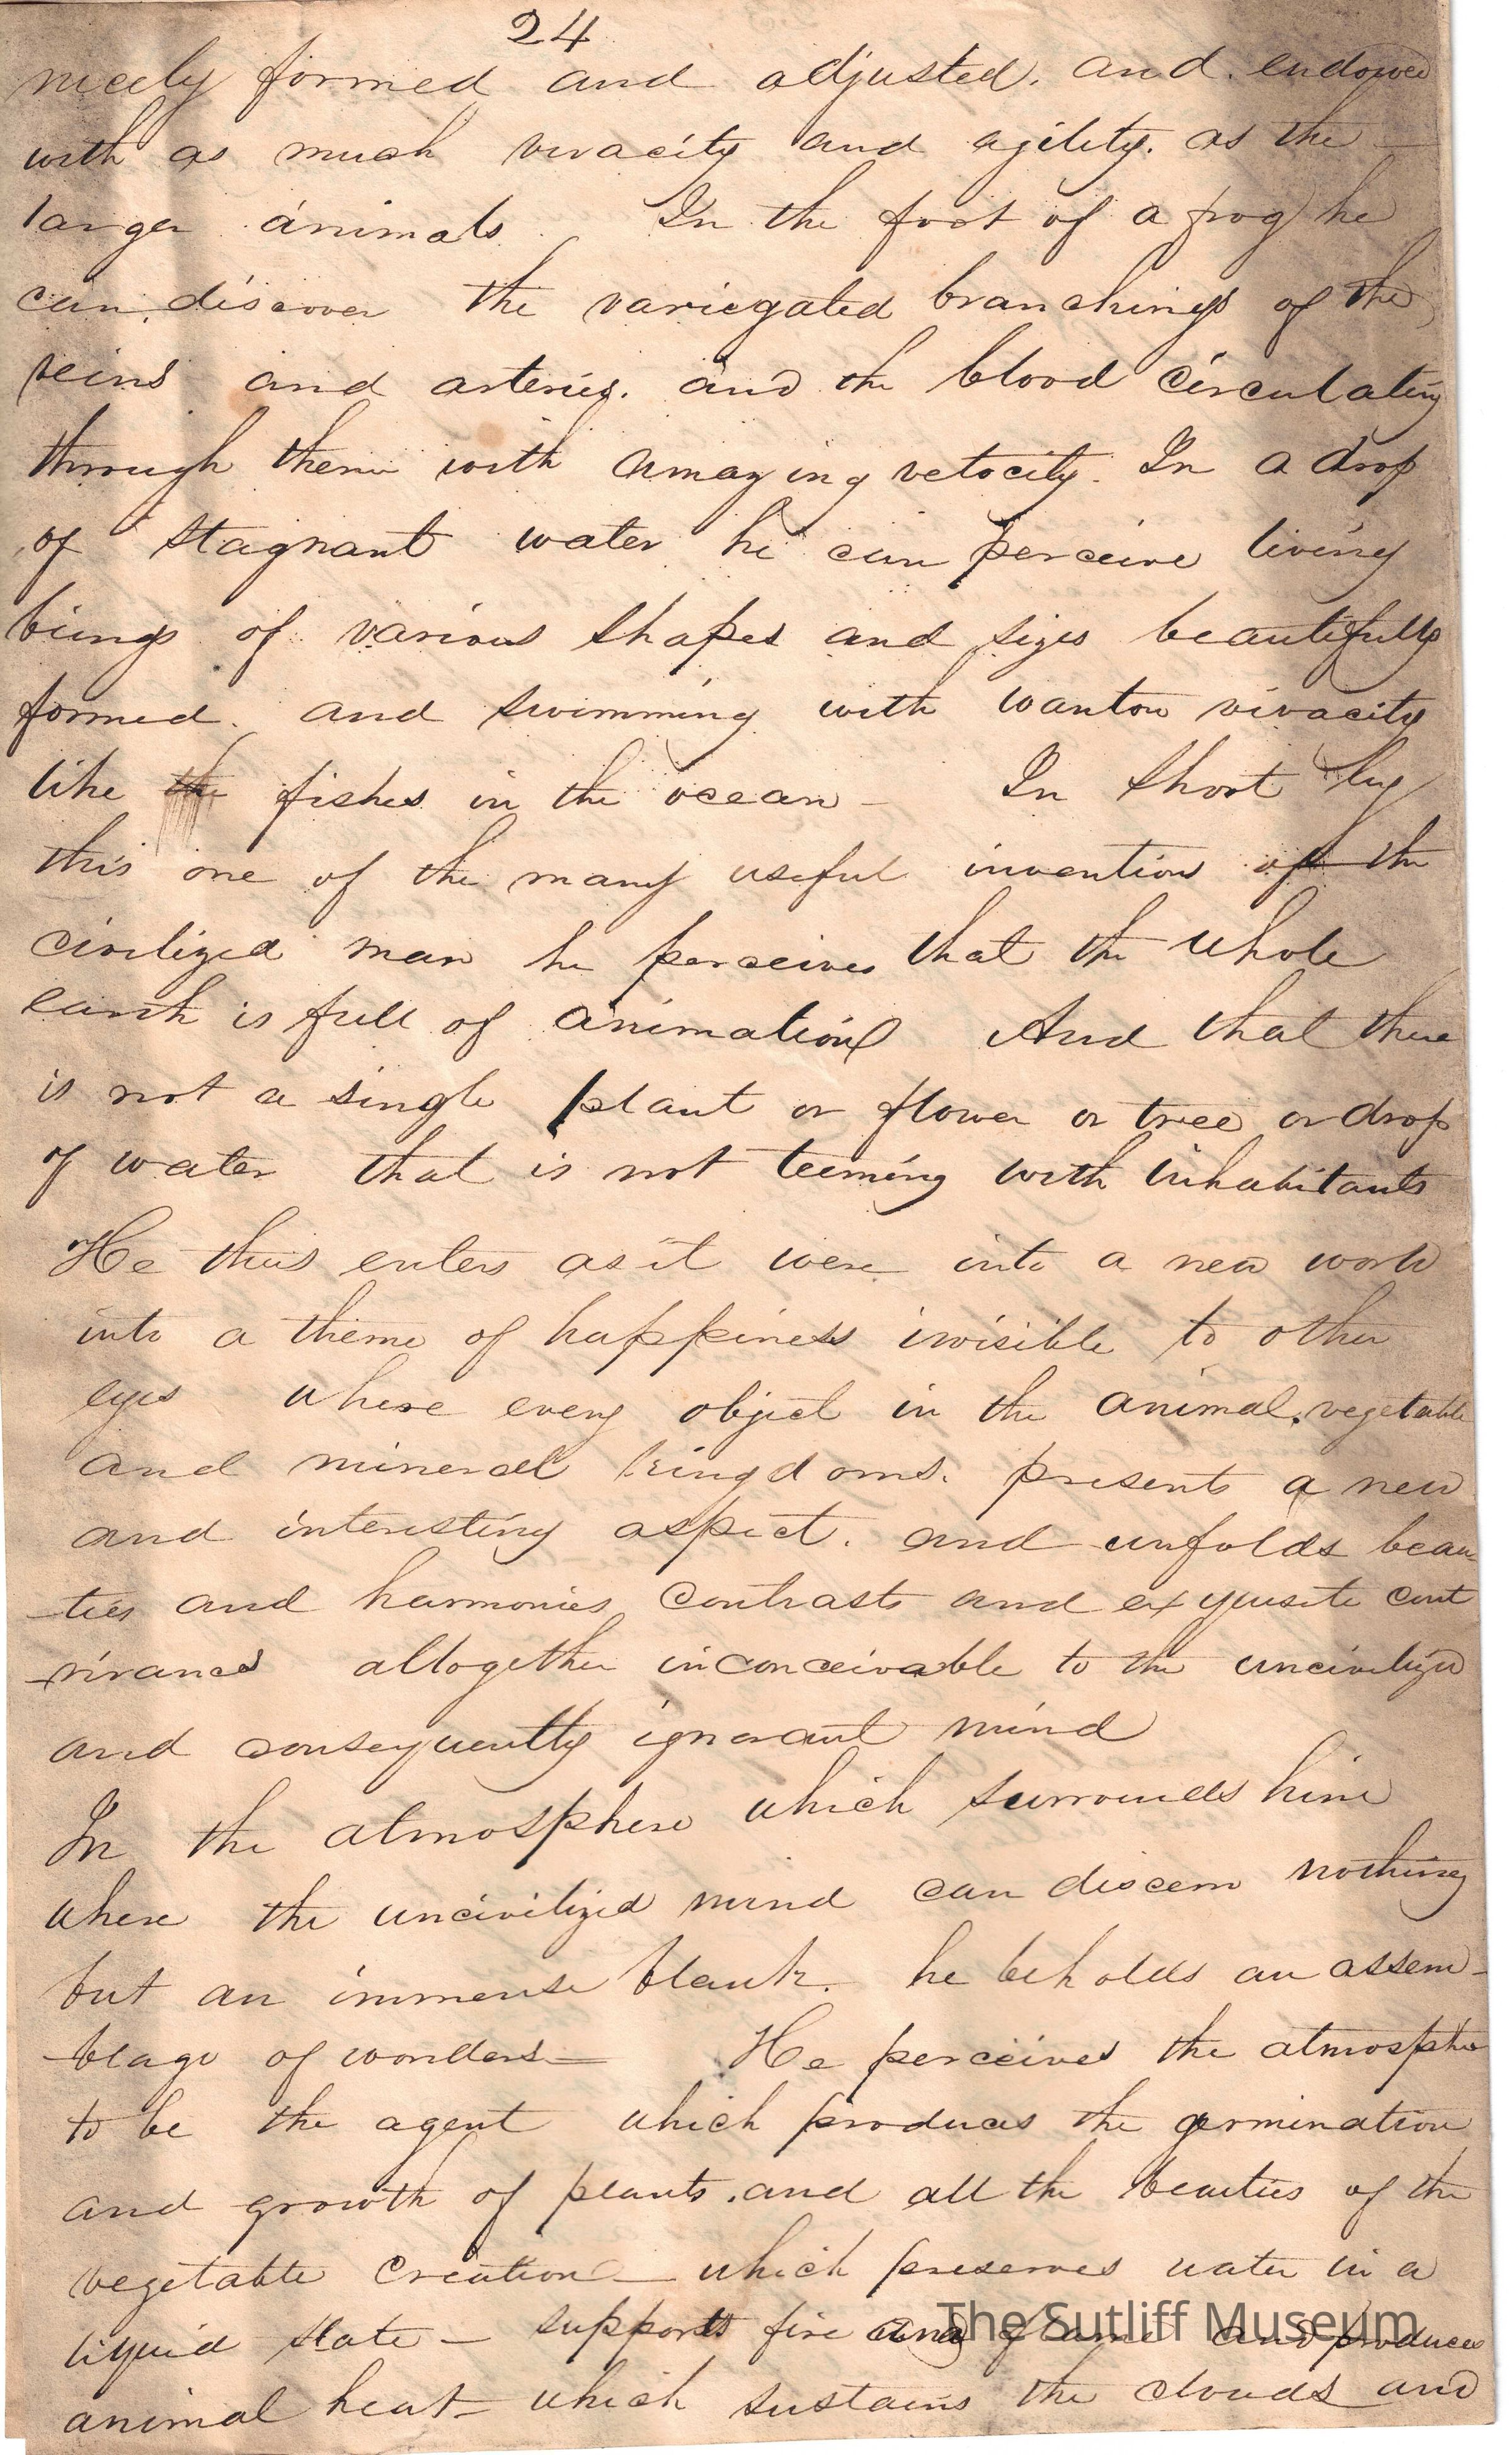 24
nicely formed and adjusted. and. endowed
with as much vivacity and agility. as the
larger animals. In the foot of a frog he
can discover the variegated branchings of the
veins and arteries. and the blood circulating
through them with amazing velocity. In a drop
of stagnant water he can perceive living
beings of various shapes and sizes beautifully
formed. and swimming with wanton vivacity
like the fishes in the ocean - In short by
this one of the many useful inventions of the
civilized man he perceives that the whole
earth is full of animation And that there
is not a single plant or flower or tree or drop
of water that is not teeming with inhabitants
He thus enters as it were into a new world
into a theme of happiness invisible to other
eyes where every object in the animal. vegetable
and mineral kingdoms. presents a new
and interesting aspect. and unfolds beau
-ties and harmonies contrasts and exquisite cont
-rivances altogether inconceivable to the uncivilized
and consequently ignorant mind
In the atmosphere which surrounds him
where the uncivilized mind can discern nothing
but an immense blank. he beholds an assem-
-blage of wonders - He perceives the atmosphere
to be the agent which produces the germination
and growth of plants. and all the beauties of the
vegetable creation - which preserves water in a
liquid state - supports fire and flame and produces
animal heat - which sustains the clouds and
The Sutliff Museum